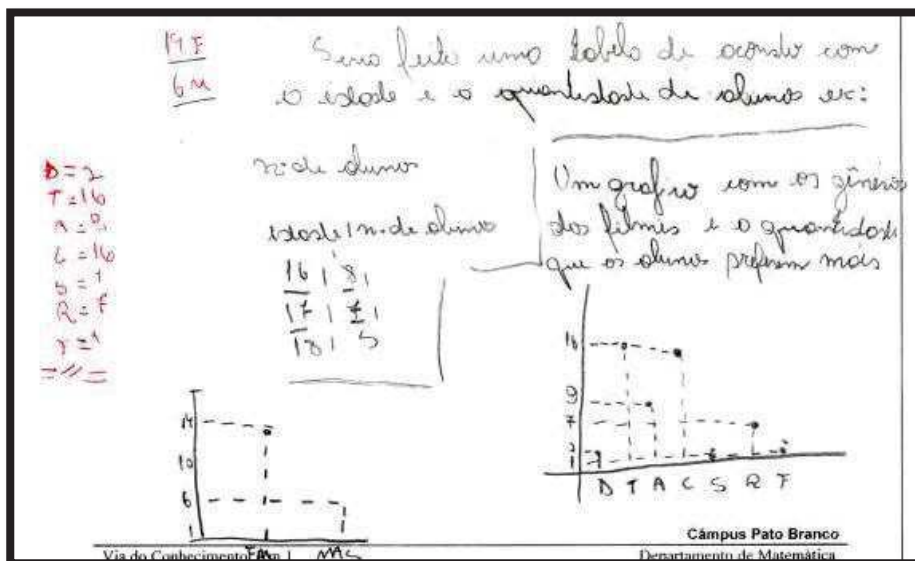 19 F
6 M
Seria feito uma tabela de acordo com
a idade e a quantidade de alunos ex:
D = 2
T = 16
C = 16
S = 1
R = 7
nº de alunos
idade | n. de aluno
16 | 8 |
17 | 7 |
18 | 5
Um grafico com os gêneros
dos filmes e a quantidade
que os alunos preferem mais
16
9
7
2
1
D T A C S R F
14
10
6
1
Fem Mas
Câmpus Pato Branco
Via do Conhecimento, Km 1
Departamento de Matemática